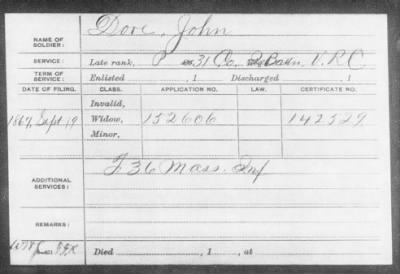 NAME OF SOLDIER: Dove, John
SERVICE: Late rank, P 31 Co, 2 Batt'n, V.R.C
TERM OF SERVICE: Enlisted , 1 Discharged , 1
DATE OF FILING. CLASS. APPLICATION NO. LAW. CERTIFICATE NO.
Invalid,
1867, Sept 19 Widow, 152606 142529
Minor,
ADDITIONAL SERVICES: F 36 Mass. Inf
REMARKS:
Died , 1 , at